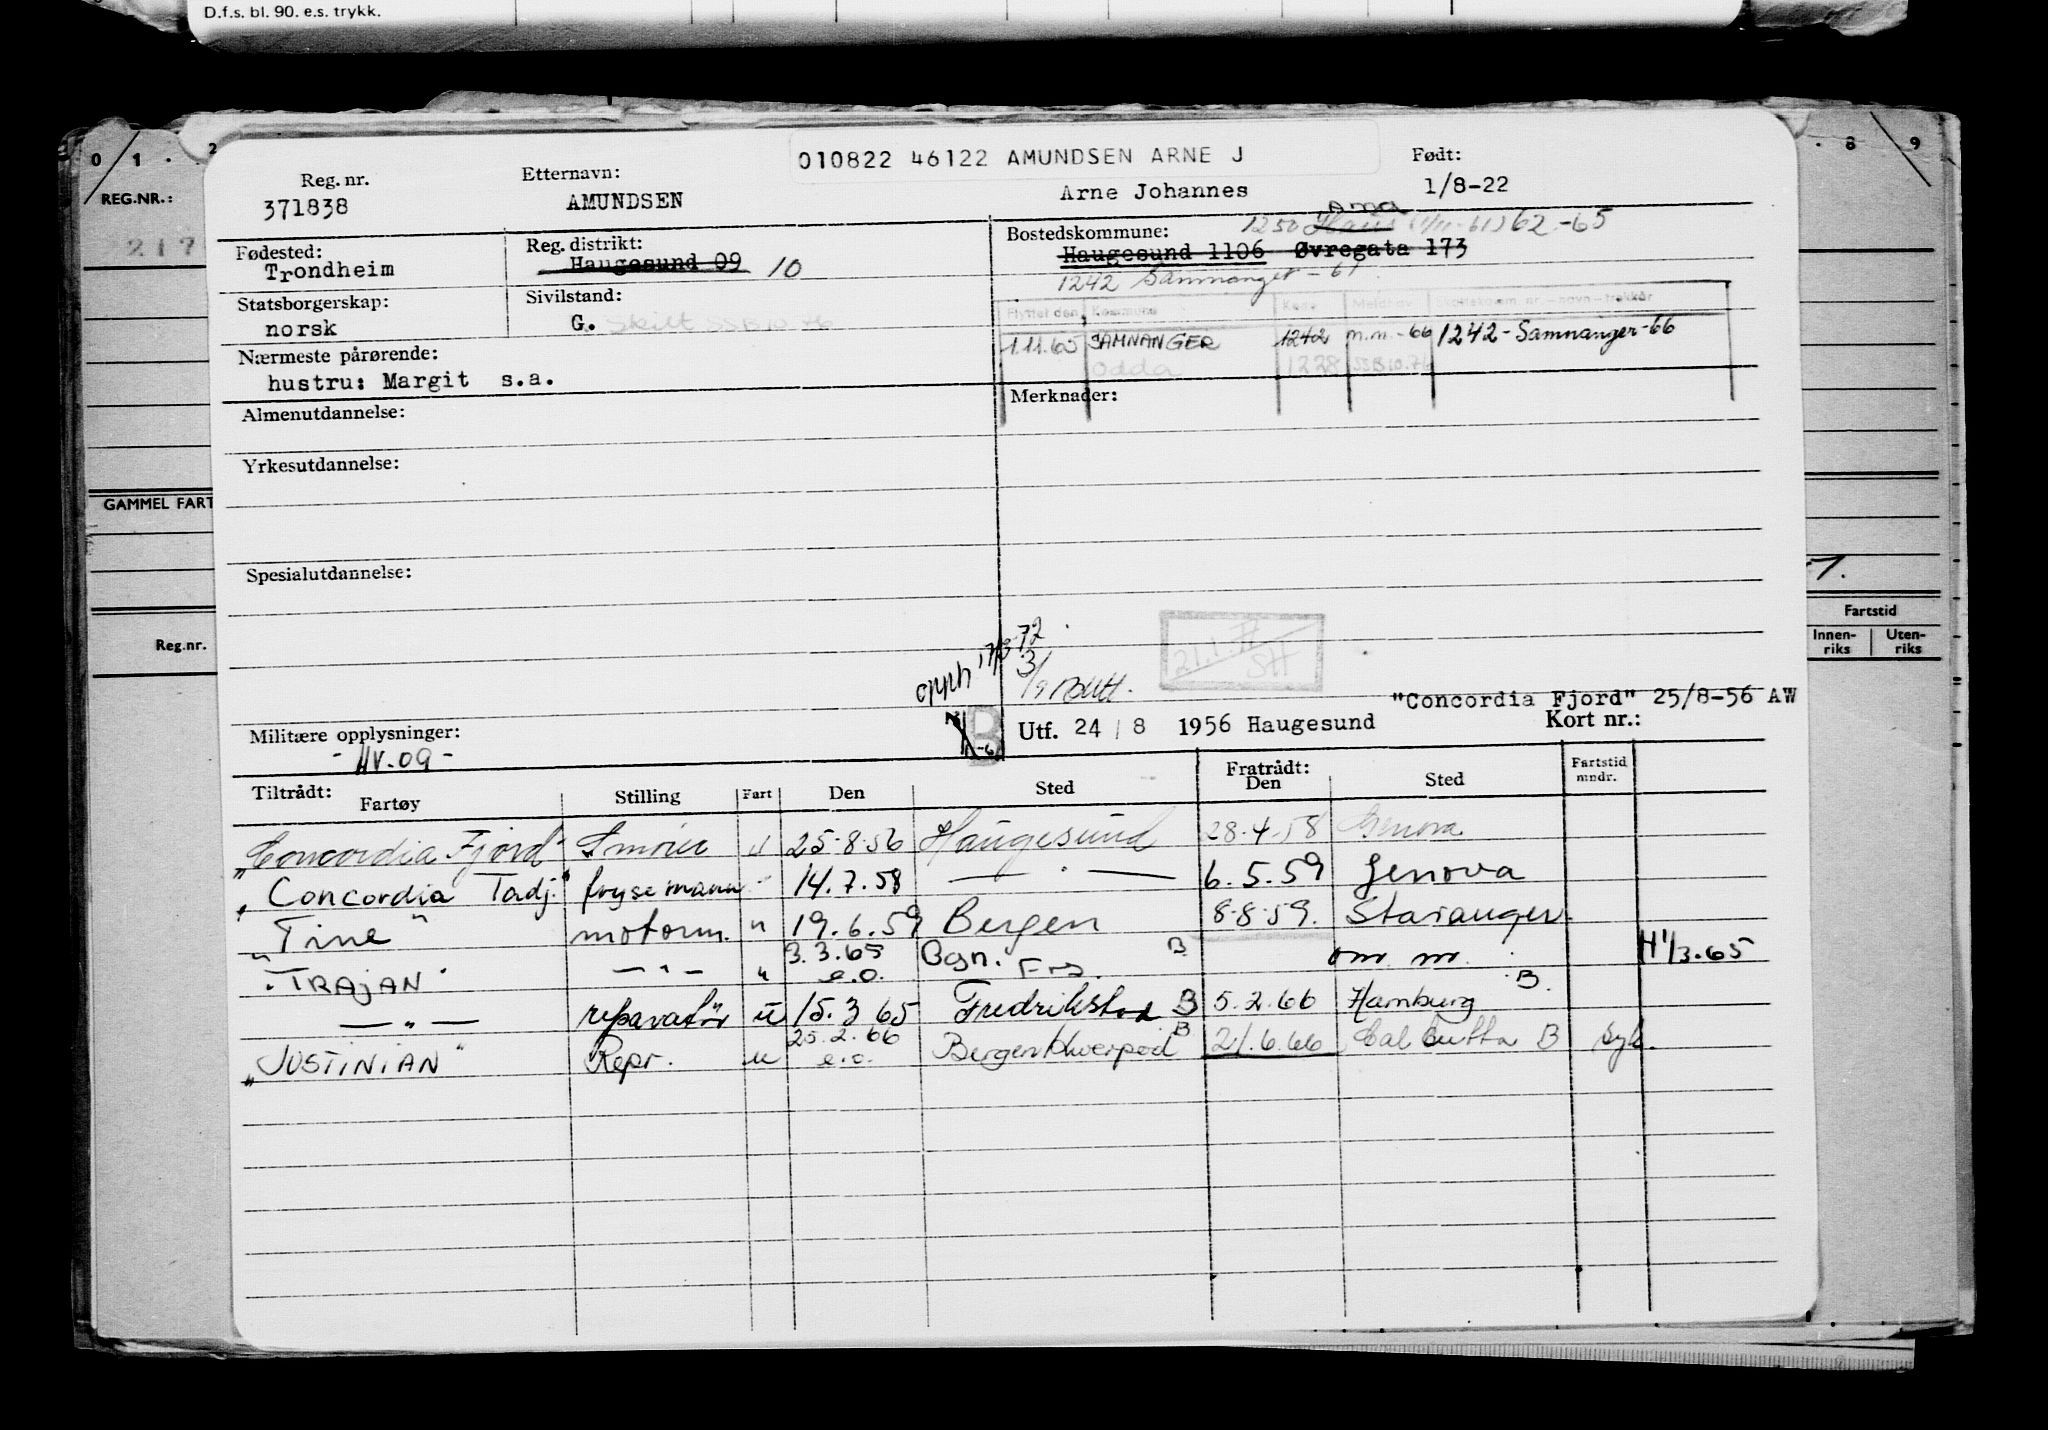 D.f.s. bl. 90. e.s. trykk.
0 1 . 2
. 8 9
REG.NR.:
217
GAMMEL FART
Reg.nr.
Fartstid
Innen-
riks
Uten-
riks
010822 46122 AMUNDSEN ARNE J
Reg. nr. Etternavn: Født:
371838 AMUNDSEN Arne Johannes 1/8-22
Fødested:
Trondheim
Reg. distrikt:
Haugesund 09 10
Bostedskommune: 1250 Haus Arna 62-65
Haugesund 1106 Øvregata 173
1242 Samnanger - 61
Statsborgerskap:
norsk
Sivilstand:
G. Skilt SSB 10.76
Flyttet den Kommune Kode Meldhav. Skattekomm. nr. – navn – trekkår
1.11.65 SAMNANGER 1242 m.m.-66 1242 - Samnanger-66
Odda 1228 SSB 10.76
Nærmeste pårørende:
hustru: Margit s.a.
Almenutdannelse:
Merknader:
Yrkesutdannelse:
Spesialutdannelse:
opph 17/3 72
21.1.
"Concordia Fjord" 25/8-56 AW
Militære opplysninger:
- HV.09 -
B
Utf. 24 / 8 1956 Haugesund Kort nr.:
Tiltrådt:
Fartøy Stilling Fart Den Sted Fratrådt:
Den Sted Fartstid
mndr.
"Concordia Fjord" Smører u 25-8-56 Haugesund 28-4-58 Genova
"Concordia Tadj." frysemann - 14.7.58 — " — 6.5.59 Genova
"Tine" motorm. " 19.6.59 Bergen 8-8-59. Stavanger
"TRAJAN" — " — " 3.3.65 e.o. Bgn. Frs. B om. m. H 1/3.65
— " — reparatør u 15.3 65 Fredrikstad B 5.2.66 Hamburg B.
"JUSTINIAN" Repr. u 25.2.66 e.o. Bergen/Liverpool B 21.6.66 Calcutta B syk.